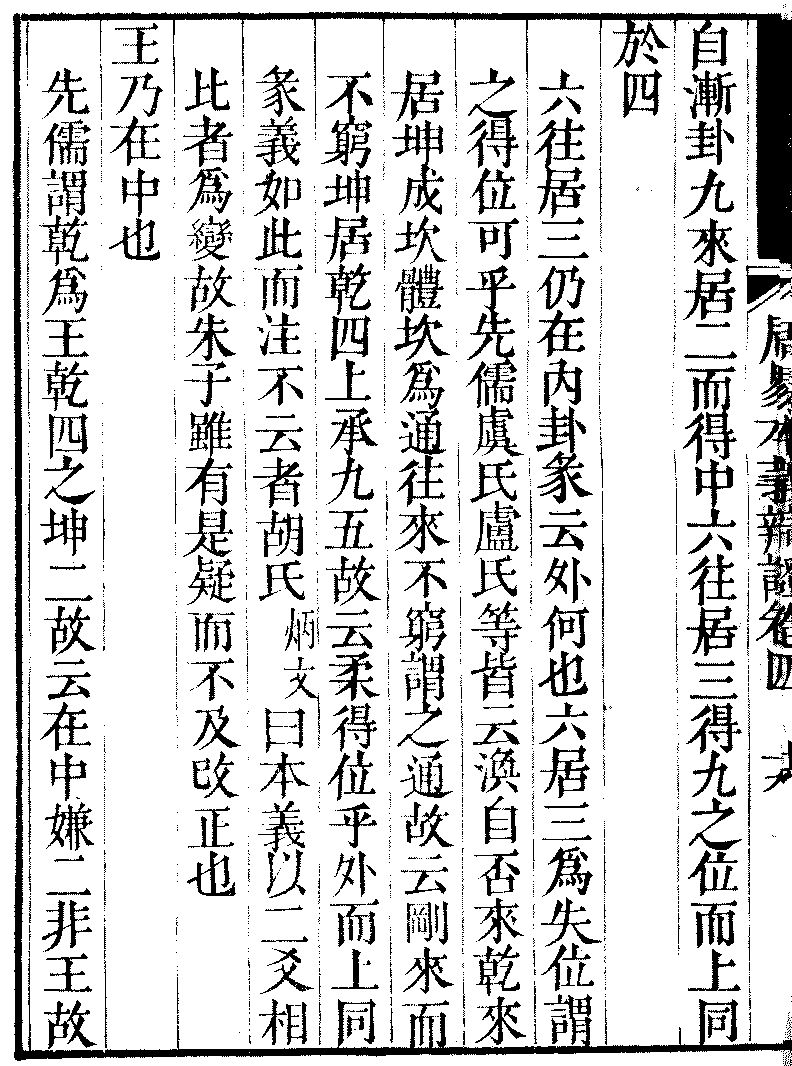 自漸卦九來居二而得中六往居三得九之位而上同
於四
六往居三仍在內卦彖云外何也六居三爲失位謂
之得位可乎先儒虞氏盧氏等皆云渙自否來乾來
居坤成坎體坎爲通往來不窮謂之通故云剛來而
不窮坤居乾四上承九五故云柔得位乎外而上同
彖義如此而注不云者胡氏炳文曰本義以二爻相
比者爲變故朱子雖有是疑而不及改正也
王乃在中也
先儒謂乾爲王乾四之坤二故云在中嫌二非王故
周易本義辨證卷四